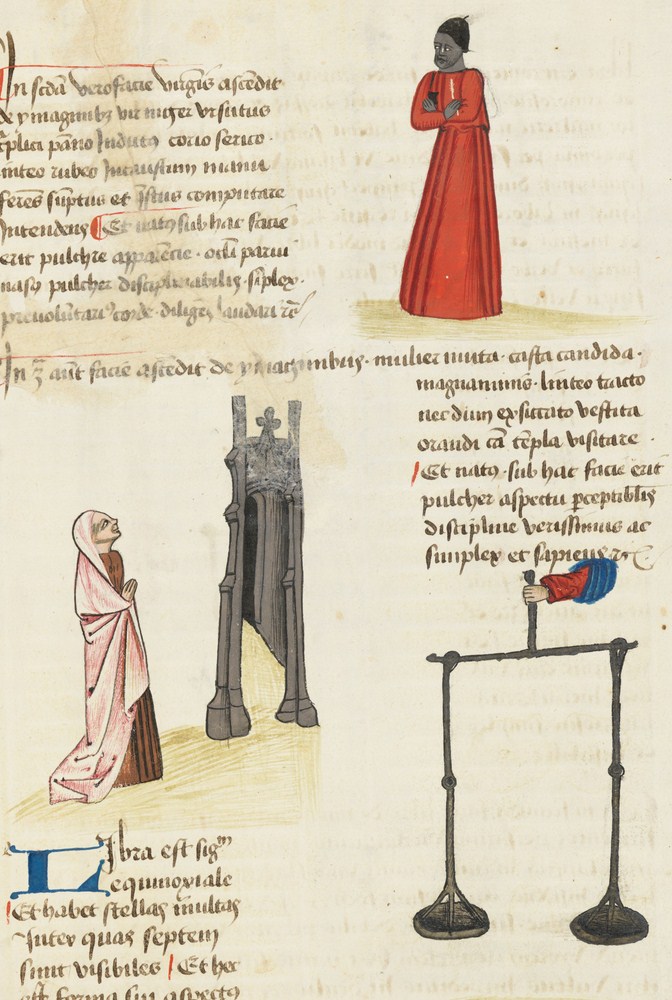 In scda vero facie virginis ascendit
de ymaginibz vir niger vestitus
pano Indutus corio serico
linteo rubeo Incaustum manu
ferens sumptus et computare
Intendens Et natus sub hac facie
erit pulchre apparencie oculi parvi
nasus pulcher disciplinabilis simplex
corde laudari
In aut facie ascendit de ymaginibus mulier muta casta candida
magnanimis linteo tracto
nec dum exsiccato vestita
orandi ca templa visitare
Et natus sub hac facie erit
pulcher aspectu perceptibilis
discipline verissimus ac
simplex et sapiens
Libra est sigm
equinoxiale
Et habet stellas multas
Inter quas septem
sunt visibiles Et hec
est forma sui aspectus